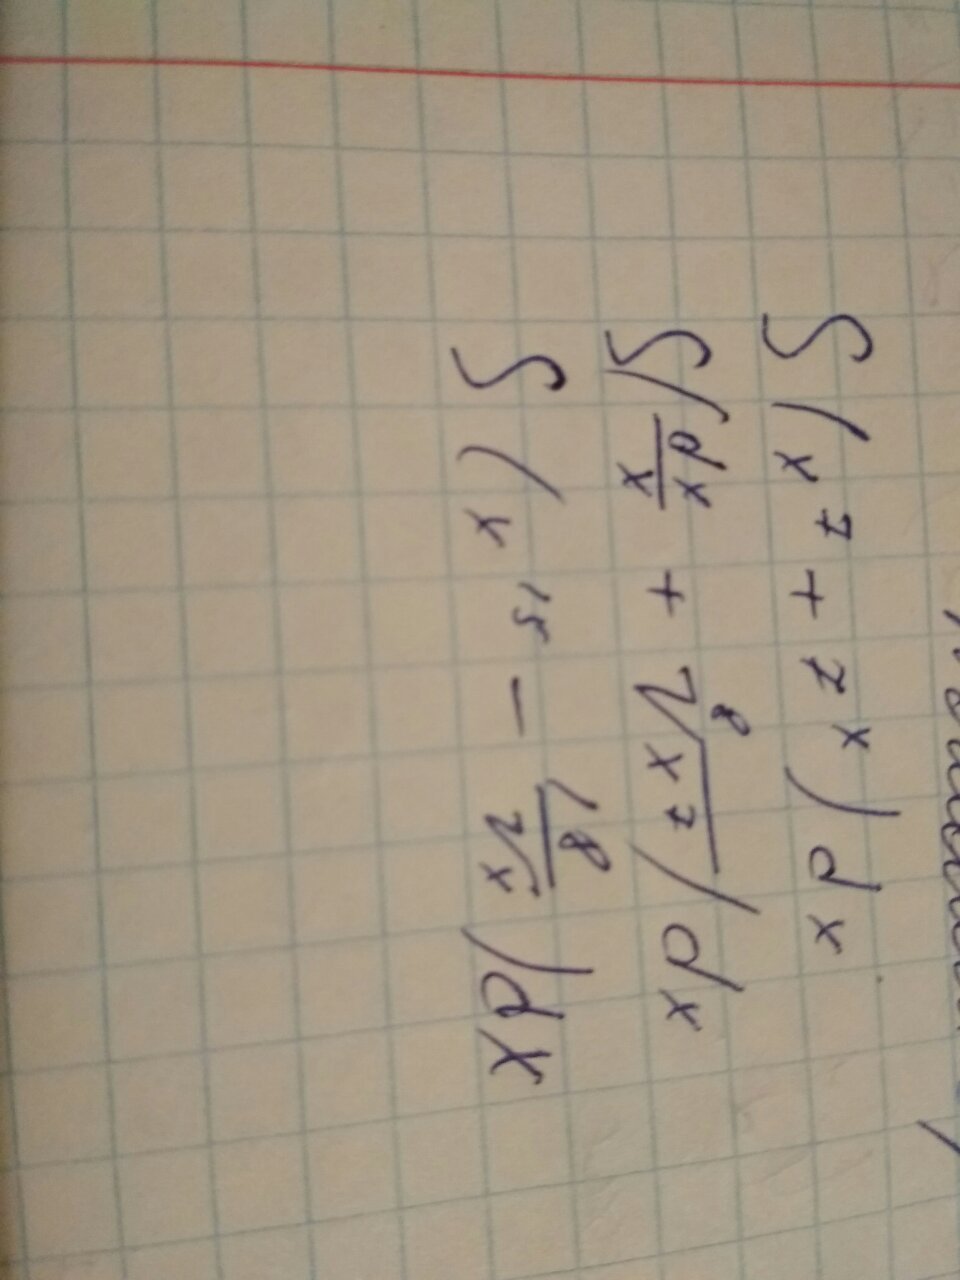 ∫(x⁷ + 7ˣ)dx
∫(dx/x + ⁸√x⁷)dx
∫(x¹⁵ − 18/√x)dx